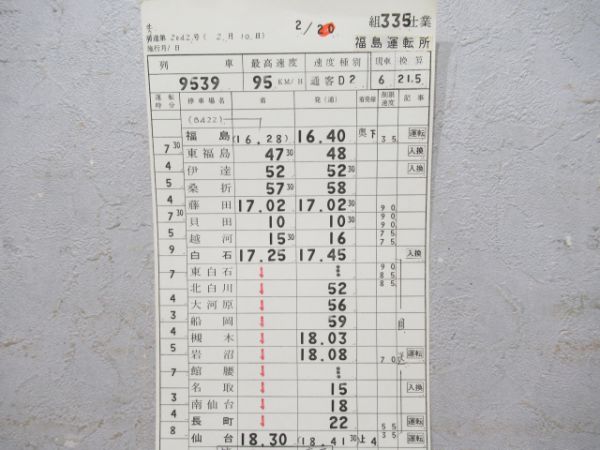 2/20
組335仕業
福島運転所
施行月/日
列 車 最高速度 速度種別 現車 換算
9539 95 KM/H 通客D2 6 21.5
運転時分 停車場名 着 発(通) 着発線 制限速度 記事
(8422)
福島 (16.28) 16.40 奥下 35 運転
7 30
東福島 47 30 48 入換
4
伊達 52 52 30 入換
5
桑折 57 30 58
4
藤田 17.02 17.02 30
7 30
貝田 10 10 30
5
越河 15 30 16
9
白石 17.25 17.45 入換
東白石 ↓
7
北白川 ↓ 52
4
大河原 ↓ 56
3
船岡 ↓ 59
4
槻木 ↓ 18.03
5
岩沼 ↓ 18.08 70 運転
館腰 ↓
7
名取 ↓ 15 入換
3
南仙台 ↓ 18
4
長町 ↓ 22 55 運転
8
仙台 18.30 (18.41 30 上4 35 運転